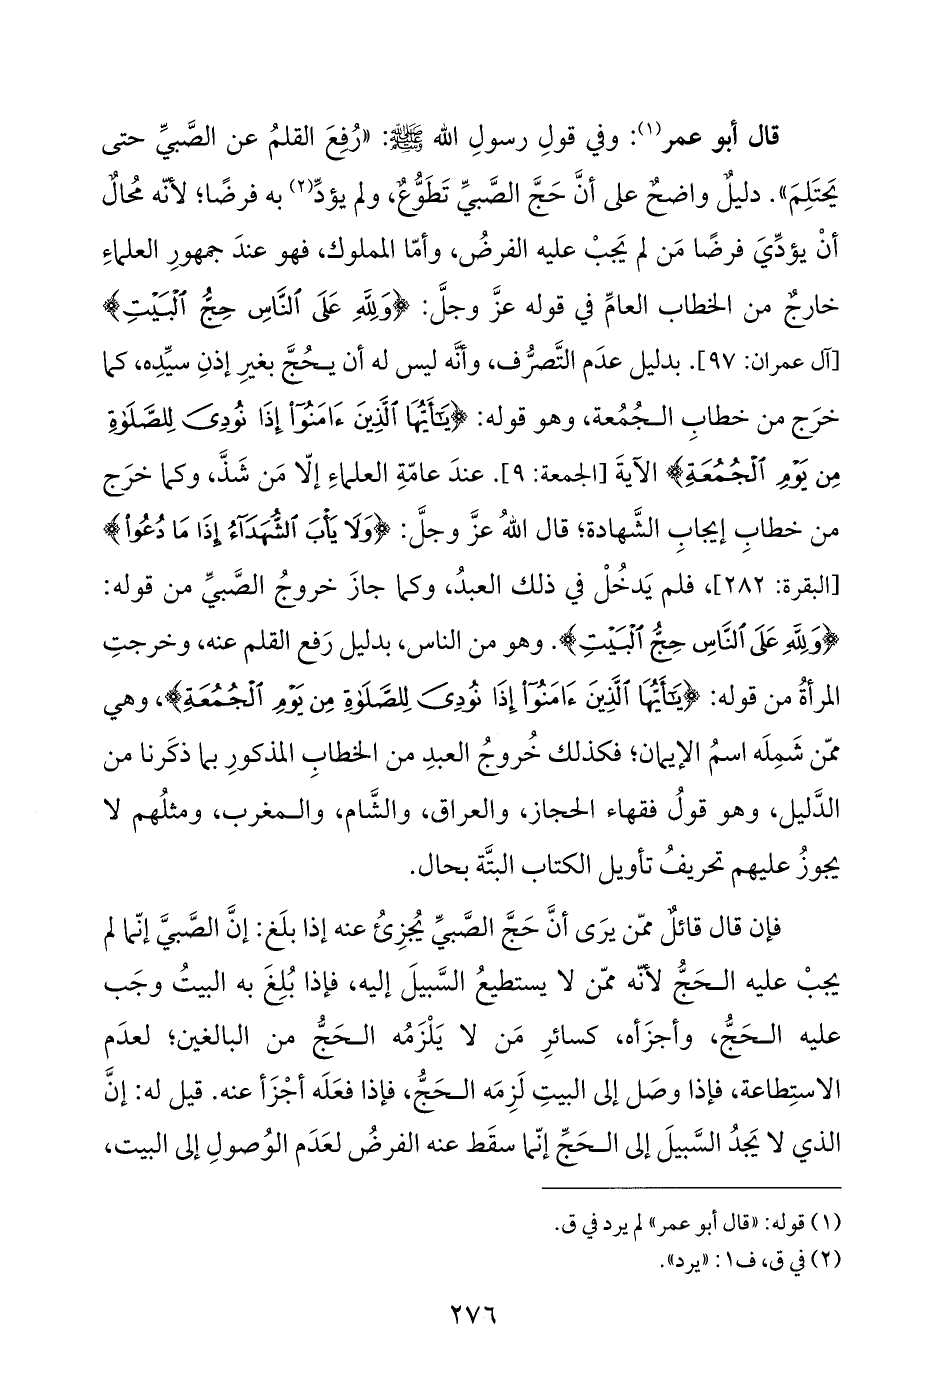 قال أبو عمر(١): وفي قولِ رسولِ الله ﷺ: «رُفِعَ القلمُ عن الصَّبيِّ حتى
يَحتَلِمَ». دليلٌ واضحٌ على أنَّ حَجَّ الصَّبيِّ تَطَوُّعٌ، ولم يؤدِّ(٢) به فرضًا؛ لأنّه مُحالٌ
أنْ يؤدِّيَ فرضًا مَن لم يَجبْ عليه الفرضُ، وأمّا المملوك، فهو عندَ جمهورِ العلماءِ
خارجٌ من الخطاب العامِّ في قوله عزَّ وجلَّ: ﴿وَلِلَّهِ عَلَى ٱلنَّاسِ حِجُّ ٱلْبَيْتِ﴾
[آل عمران: ٩٧]. بدليل عدَم التَّصرُّف، وأنَّه ليس له أن يحُجَّ بغيرِ إذنِ سيِّدِه، كما
خرَج من خطابِ الجُمُعة، وهو قوله: ﴿يَٰٓأَيُّهَا ٱلَّذِينَ ءَامَنُوٓا۟ إِذَا نُودِىَ لِلصَّلَوٰةِ
مِن يَوْمِ ٱلْجُمُعَةِ﴾ الآيةَ [الجمعة: ٩]. عندَ عامّةِ العلماءِ إلّا مَن شَذَّ، وكما خرَج
من خطابِ إيجابِ الشَّهادة؛ قال اللهُ عزَّ وجلَّ: ﴿وَلَا يَأْبَ ٱلشُّهَدَآءُ إِذَا مَا دُعُوا۟﴾
[البقرة: ٢٨٢]، فلم يَدخُلْ في ذلك العبدُ، وكما جازَ خروجُ الصَّبيِّ من قوله:
﴿وَلِلَّهِ عَلَى ٱلنَّاسِ حِجُّ ٱلْبَيْتِ﴾. وهو من الناس، بدليل رَفع القلم عنه، وخرجتِ
المرأةُ من قوله: ﴿يَٰٓأَيُّهَا ٱلَّذِينَ ءَامَنُوٓا۟ إِذَا نُودِىَ لِلصَّلَوٰةِ مِن يَوْمِ ٱلْجُمُعَةِ﴾، وهي
ممّن شَمِلَه اسمُ الإيمان؛ فكذلك خُروجُ العبدِ من الخطابِ المذكورِ بما ذكَرنا من
الدَّليل، وهو قولُ فقهاء الحجاز، والعراق، والشَّام، والمغرب، ومثلُهم لا
يجوزُ عليهم تحريفُ تأويل الكتاب البتَّة بحال.
فإن قال قائلٌ ممّن يرَى أنَّ حَجَّ الصَّبيِّ يُجزِئُ عنه إذا بلَغ: إنَّ الصَّبيَّ إنّما لم
يجبْ عليه الحَجُّ لأنّه ممّن لا يستطيعُ السَّبيلَ إليه، فإذا بُلِغَ به البيتُ وجَب
عليه الحَجُّ، وأجزَأه، كسائرِ مَن لا يَلْزَمُه الحَجُّ من البالغين؛ لعدَم
الاستِطاعة، فإذا وصَل إلى البيتِ لَزِمَه الحَجُّ، فإذا فعَلَه أجْزَأ عنه. قيل له: إنَّ
الذي لا يَجدُ السَّبيلَ إلى الحَجِّ إنّما سقَط عنه الفرضُ لعَدَم الوُصولِ إلى البيت،
(١) قوله: «قال أبو عمر» لم يرد في ق.
(٢) في ق، ف١: «يرد».
٢٧٦